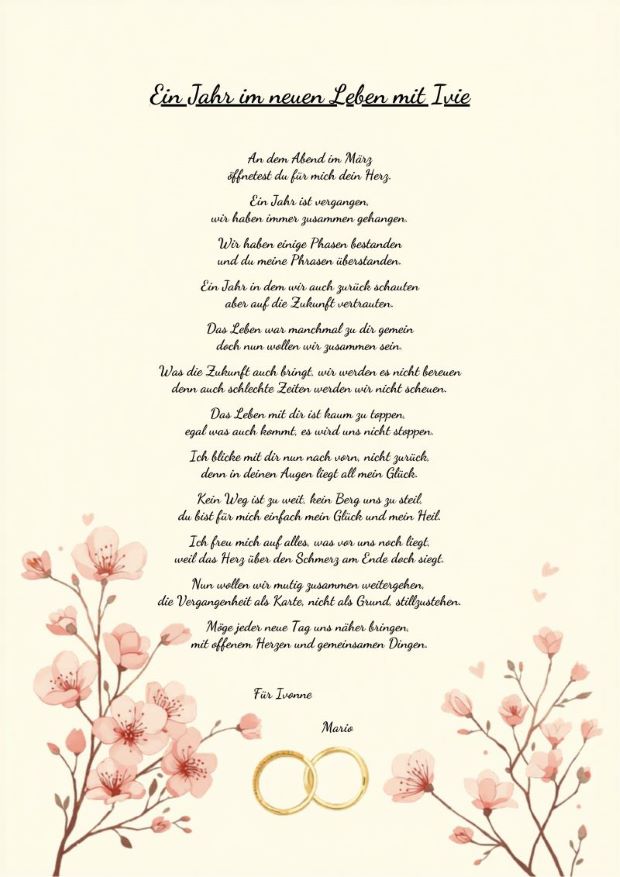 Ein Jahr im neuen Leben mit Ivie
An dem Abend im März
öffnetest du für mich dein Herz.
Ein Jahr ist vergangen,
wir haben immer zusammen gehangen.
Wir haben einige Phasen bestanden
und du meine Phrasen überstanden.
Ein Jahr in dem wir auch zurück schauten
aber auf die Zukunft vertrauten.
Das Leben war manchmal zu dir gemein
doch nun wollen wir zusammen sein.
Was die Zukunft auch bringt, wir werden es nicht bereuen
denn auch schlechte Zeiten werden wir nicht scheuen.
Das Leben mit dir ist kaum zu toppen,
egal was auch kommt, es wird uns nicht stoppen.
Ich blicke mit dir nun nach vorn, nicht zurück,
denn in deinen Augen liegt all mein Glück.
Kein Weg ist zu weit, kein Berg uns zu steil,
du bist für mich einfach mein Glück und mein Heil.
Ich freu mich auf alles, was vor uns noch liegt,
weil das Herz über den Schmerz am Ende doch siegt.
Nun wollen wir mutig zusammen weitergehen,
die Vergangenheit als Karte, nicht als Grund, stillzustehen.
Möge jeder neue Tag uns näher bringen,
mit offenem Herzen und gemeinsamen Dingen.
Für Ivonne
Mario